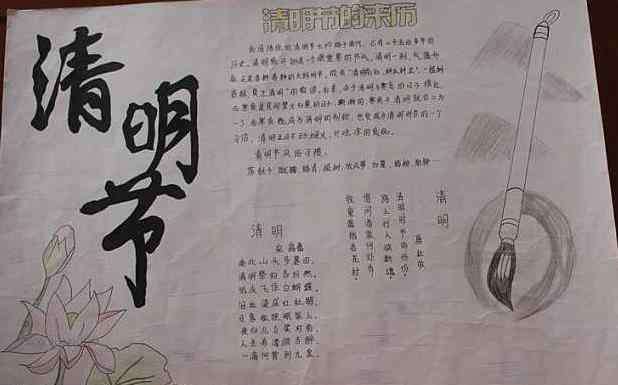 清明节
清明节的来历
我国传统的清明节大约始于周代,已有二千五百多年的
历史。清明最开始是一个很重要的节气,清明一到,气温升
高,正是春耕春种的大好时节,故有"清明前后,种瓜种豆"。"植树
造林,莫过清明"的农谚。后来,由于清明与寒食的日子接近,
而寒食是民间禁火扫墓的日子,渐渐的,寒食与清明就合二为
一了,而寒食既成为清明的别称,也变成为清明时节的一个
习俗,清明之日不动烟火,只吃凉的食品。
清明节风俗习惯。
荡秋千、蹴鞠、踏青、植树、放风筝、扫墓、插柳
清明
宋 高翥
南北山头多墓田,
清明祭扫各纷然。
纸灰飞作白蝴蝶,
泪血染成红杜鹃。
日暮狐狸眠冢上,
夜归儿女笑灯前。
人生有酒须当醉,
一滴何曾到九泉。
清明
唐 杜牧
清明时节雨纷纷,
路上行人欲断魂。
借问酒家何处有,
牧童遥指杏花村。